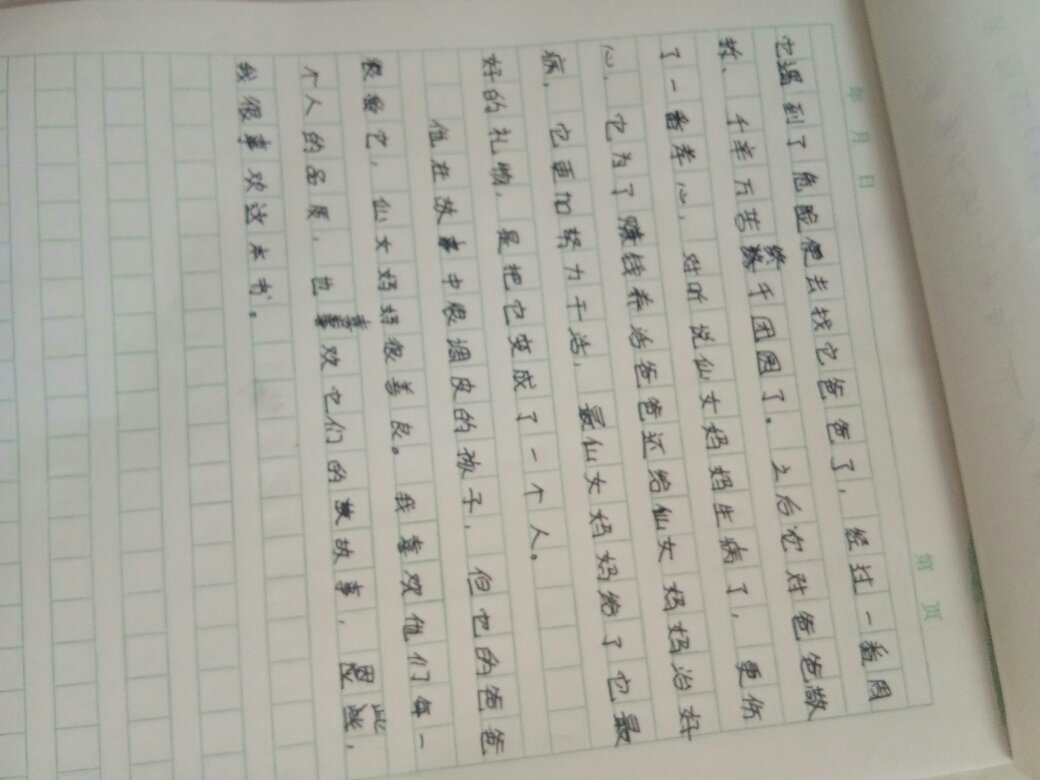 年 月 日
第 页
它遇到了危险便去找它爸爸了，经过一番周
折、千辛万苦终于团圆了。之后它对爸爸敬
了一番孝心，对听说仙女妈妈生病了，更伤
心，它为了赚钱养活爸爸还给仙女妈妈治好
病，它更加努力干活，最仙女妈妈给了它最
好的礼物，是把它变成了一个人。
他在故事中很调皮的孩子，但它的爸爸
很爱它，仙女妈妈很善良。我喜欢他们每一
个人的品质，也喜欢它们的故故事，因此，
我很喜欢这本书。